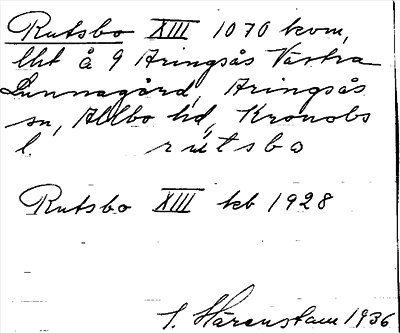 Rutsbo XIII 1070 kvm,
lht å 9 Aringsås Västra
Lunnagård, Aringsås
sn, Allbo hd, Kronobs
l. rùtsbo
Rutsbo XIII kb 1928
I. Härenstam 1936